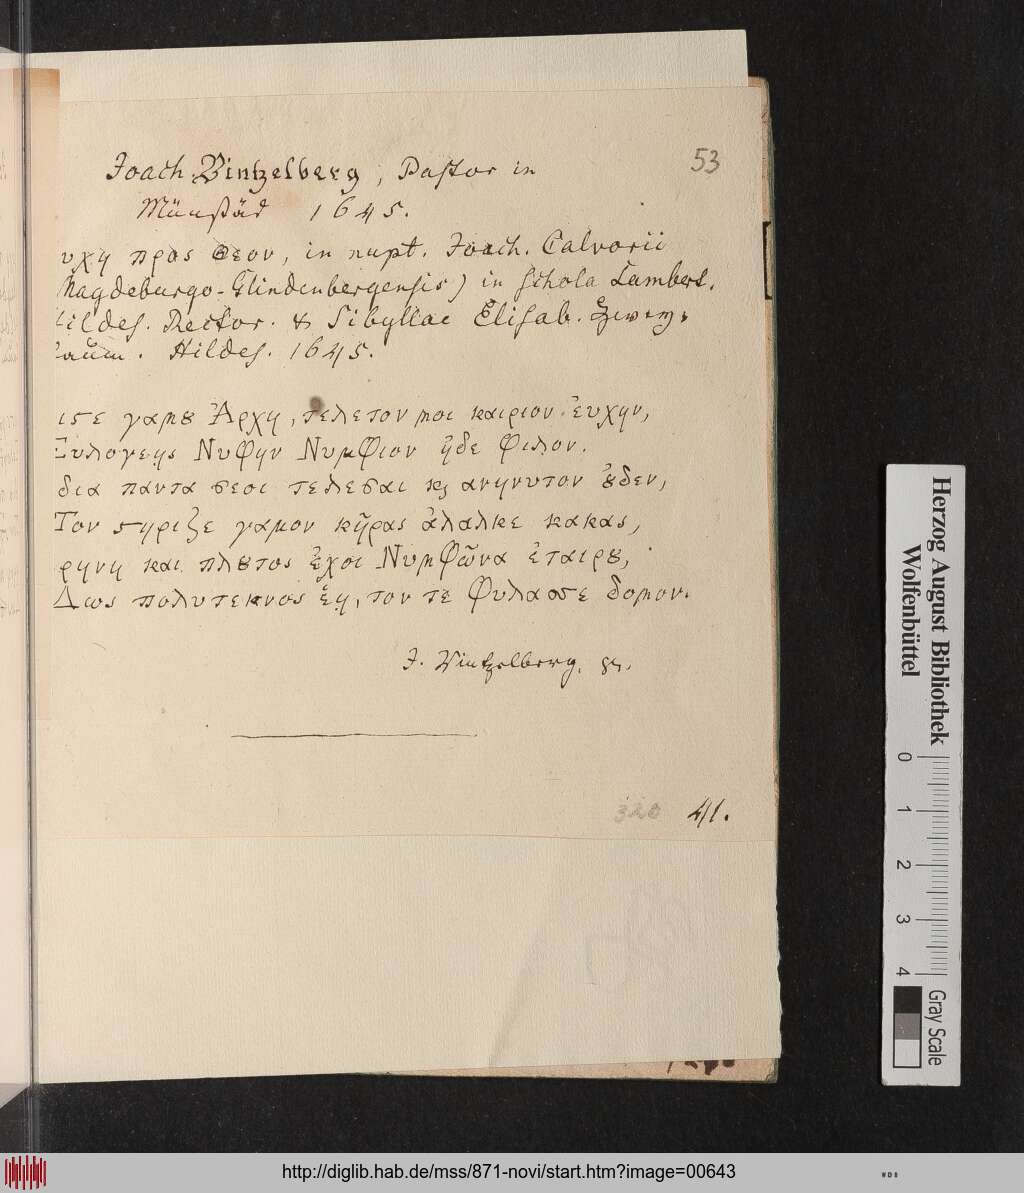 53
Joach. Vintzelberg, Pastor in
Münstäd 1645.
υχη προς θεον, in nupt. Joach. Calvorii
Magdeburgo-Glindenbergensis) in schola Lambert.
Hildes. Rector. & Sibyllae Elisab.
baum. Hildes. 1645.
γαμȣ Ἀρχη, τελετον μοι καιριον ἐυχην,
Ευλογεης Νυφην Νυμφιον ἠδε φιλον.
δια παντα σεοι τελεσαι κ ανηνυτον ȣδεν,
Τον στηριζε γαμον κῆρας ἀλαλκε κακας,
ρηνη και πλȣτος ἐχοι Νυμφῶνα ἑταιρȣ,
Δως πολυτεκνος ἐῃ, τον τε φυλασσε δομον.
J. Vintzelberg.
320 41.
Herzog August Bibliothek
Wolfenbüttel
0 1 2 3 4
Gray Scale
http://diglib.hab.de/mss/871-novi/start.htm?image=00643